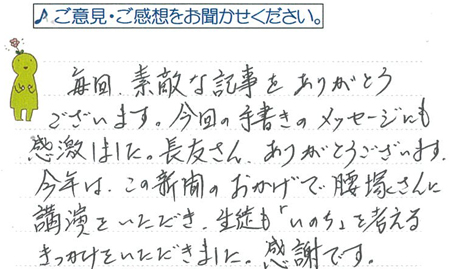 ♪ご意見・ご感想をお聞かせください。
毎回、素敵な記事をありがとう
ございます。今回の手書きのメッセージにも
感激しました。長友さん、ありがとうございます。
今年は、この新聞のおかげで腰塚さんに
講演をいただき、生徒も「いのち」を考える
きっかけをいただきました。感謝です。